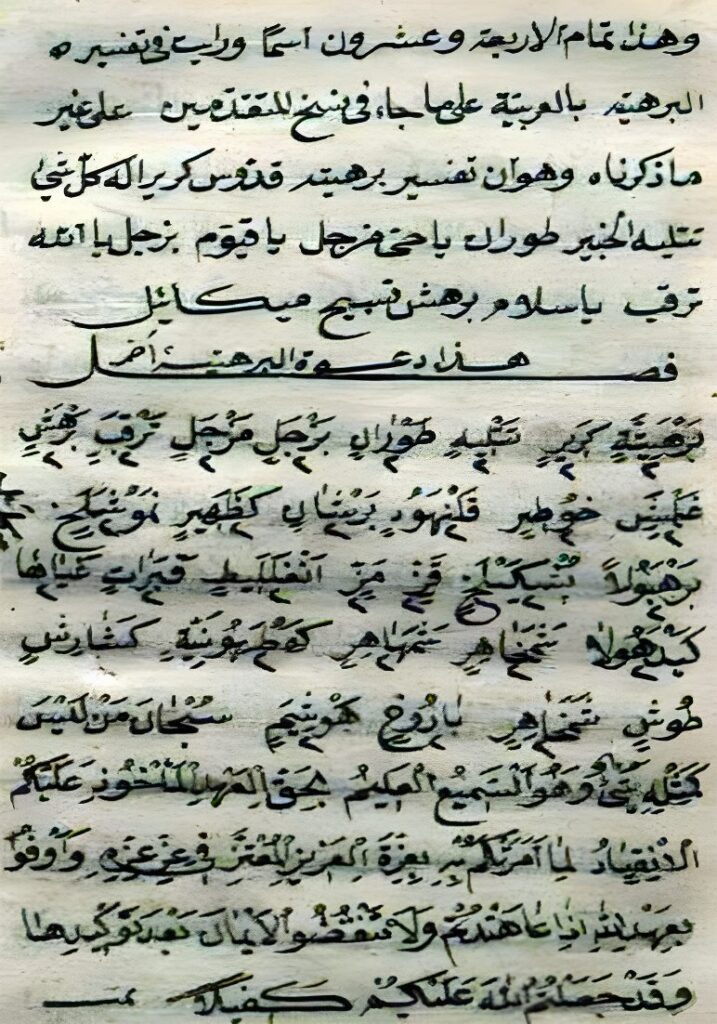 وهذا تمام الاربعة وعشرون اسمًا ورايت في تفسيره
البرهتيه بالعربية على ما جاء في نسخ للمتقدمين على غير
ما ذكرناه وهو ان تفسير برهتيه قدوس كرير اله كل شئ
تتليه الخبير طوران يا حي مزجل يا قيوم بزجل يا الله
ترقب يا سلام برهش تسبيح ميكائيل
فصل هذا دعوة البرهتية أخر
بَرْهَتِيَّةٍ كَرِيرٍ تَتْلِيهٍ طَوْرَانٍ بَزْجَلٍ مَزْجَلٍ تَرْقَبٍ بَرْهَشٍ
غَلْمَشٍ خَوْطِيرٍ قَلْنَهُودٍ بَرْشَانٍ كَظْهِيرٍ نَمَوْشَلَخٍ
بَرْهَيُولاً بَشْكَيْلَخٍ قَزٍ مَزٍ انْغَلَلِيطٍ قَبَرَاتٍ غَيَاهَا
كَيْدَهُولَا شَمْخَاهِرٍ شَمْهَاهِرٍ كَهْطَهُونِيَّةٍ كَشَارِشٍ
طُوشٍ شَمْخَاهِرٍ بَارُوخٍ سُبْحَانَ مَنْ لَيْسَ
كَمِثْلِهِ شَئٌ وَهُوَ السَّمِيعُ الْعَلِيمُ بِحَقِّ الْعَهْدِ الْمَأْخُوذِ عَلَيْكُمْ
الانْقِيَادُ لِمَا آمَرْتُكُمْ بِهِ بِعِزَّةِ الْعَزِيزِ الْمُعْتَزِّ فِي عِزِّ عِزِّهِ وَأَوْفُوا
بِعَهْدِ اللهِ إِذَا عَاهَدْتُمْ وَلَا تَنْقُضُوا الْأَيْمَانَ بَعْدَ تَوْكِيدِهَا
وَقَدْ جَعَلْتُمُ اللهَ عَلَيْكُمْ كَفِيلاً تمت